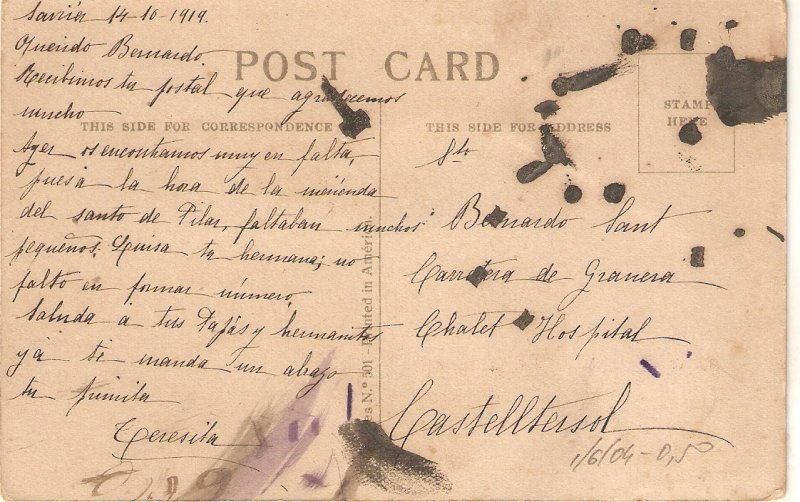 Sarriá 14-10-1919.
Querido Bernardo.
Recibimos tu postal que agradecemos
mucho
Ayer os encontramos muy en falta,
pues a la hora de la merienda
del santo de Pilar, faltaban muchos
pequeños. Luisa tu hermana; no
falto en formar número.
Saluda á tus Papás y hermanitos
y á ti manda un abrazo
tu primita
Teresita
POST CARD
THIS SIDE FOR CORRESPONDENCE
THIS SIDE FOR ADDRESS
STAMP
HERE
es N.º 501 - Printed in América.
Bernardo Sant
Carretera de Granera
Chalet Hospital
Castelltersol
1/6/04-0,50